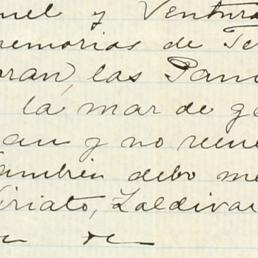 nuel y Ventura
emorias de Te
oran, las Pam
la mar de ge
an y no reune
ambien debo me
iriato, Zaldivar